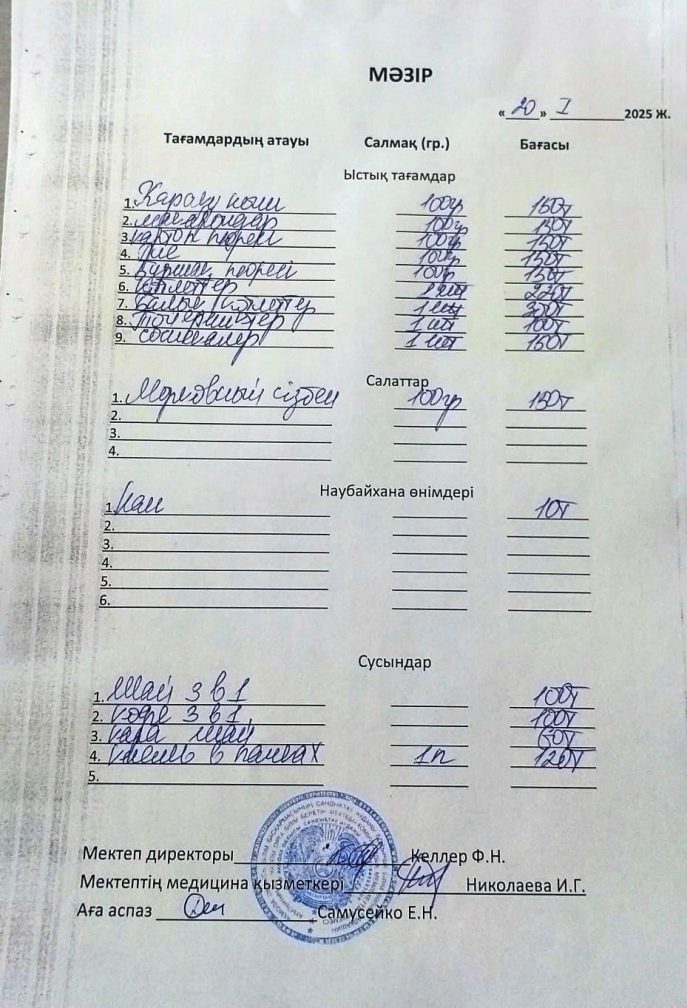 МӘЗІР
«20» I 2025 ж.
Тағамдардың атауы Салмақ (гр.) Бағасы
Ыстық тағамдар
1. Қарақұмық 100гр 150т
2. макарондар 100гр 150т
3. картоп пюресі 100гр 150т
4. рис 100гр 150т
5. бұршақ пюресі 100гр 150т
6. котлеттер 1 шт
7. балық котлеттер 1 шт 300т
8. 1 шт 100т
9. сосискалар 1 шт 150т
Салаттар
1. Морковный сізбен 100гр 150т
2.
3.
4.
Наубайхана өнімдері
1. Нан 10т
2.
3.
4.
5.
6.
Сусындар
1. Шай 3 в 1 100т
2. кофе 3 в 1 100т
3. қара шай 60т
4. кисель в пачках 1п 120т
5.
Мектеп директоры Келлер Ф.Н.
Мектептің медицина қызметкері Николаева И.Г.
Аға аспаз Самусейко Е.Н.